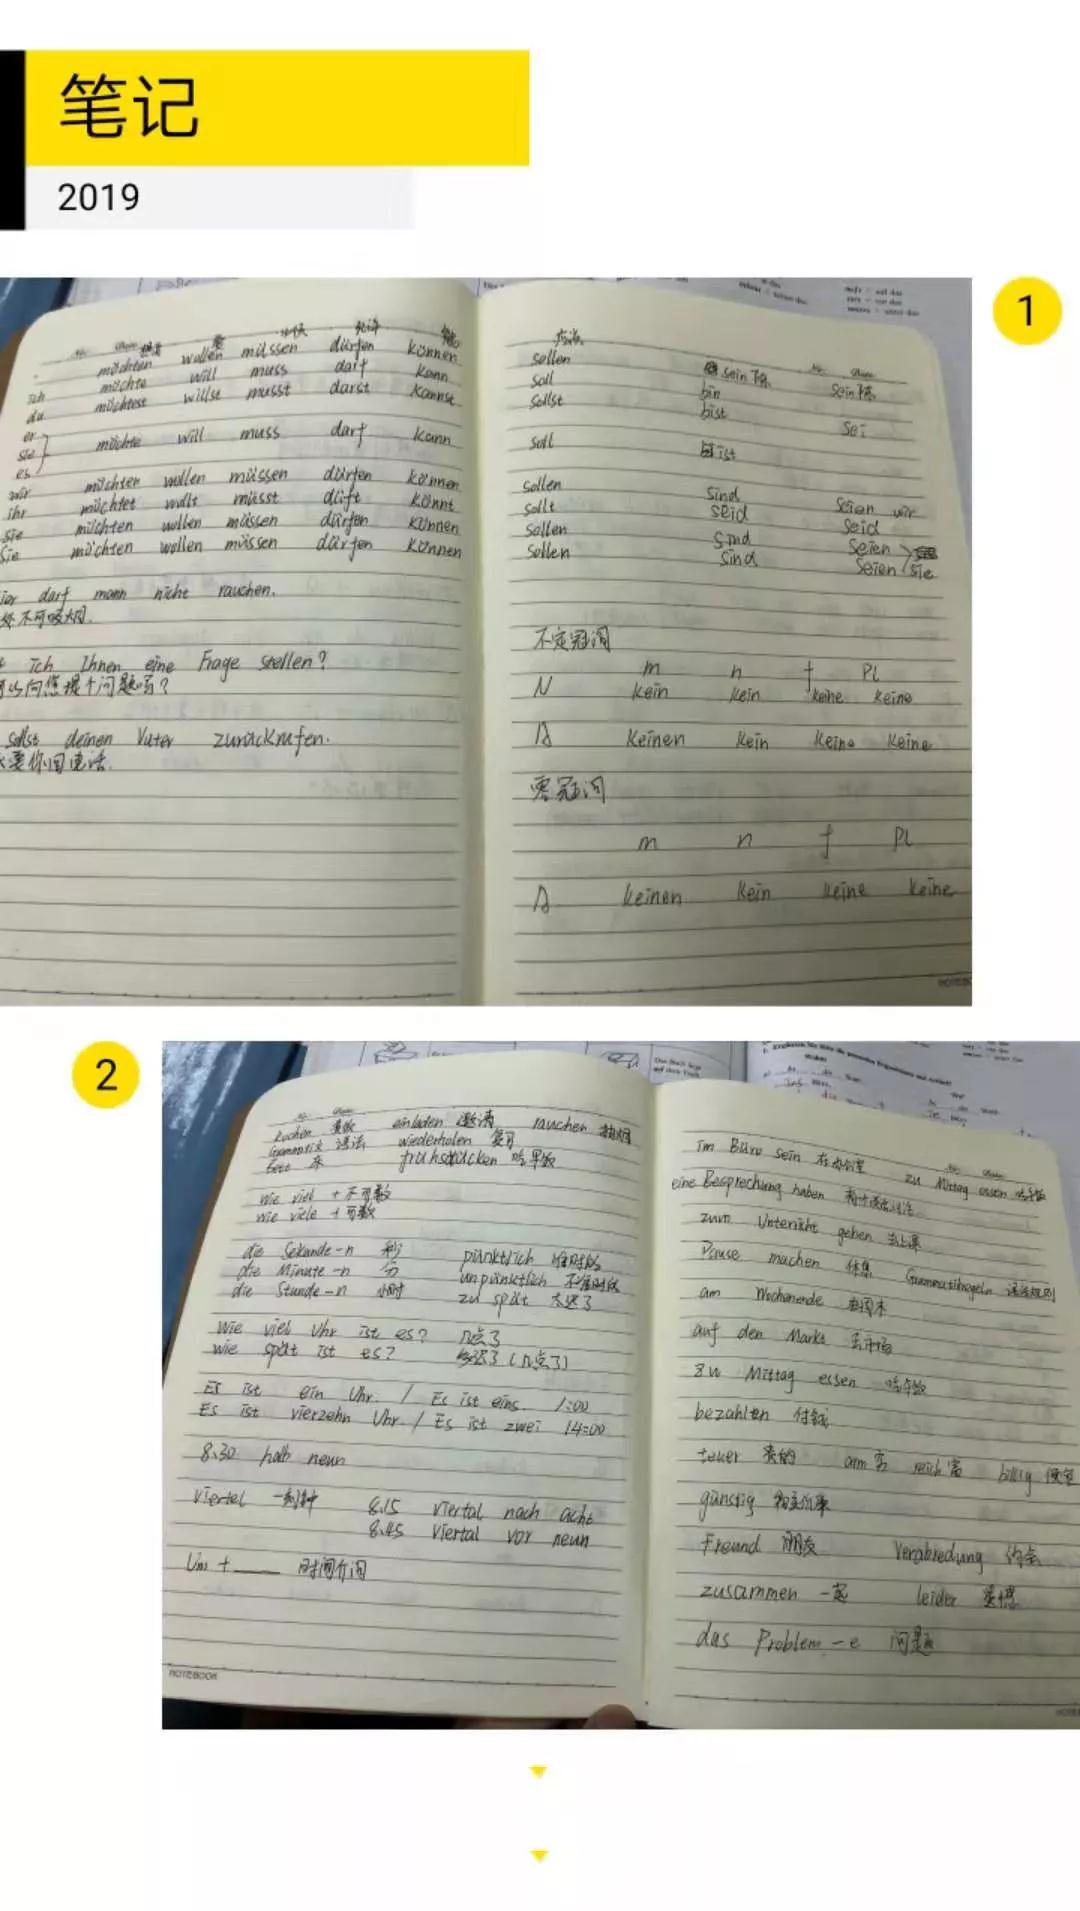 笔记
2019
1
möchten wollen müssen dürfen können
ich möchte will muss darf kann
du möchtest willst musst darfst kannst
er
sie möchte will muss darf kann
es
wir möchten wollen müssen dürfen können
ihr möchtet wollt müsst dürft könnt
sie möchten wollen müssen dürfen können
Sie möchten wollen müssen dürfen können
ier darf mann nicht rauchen.
处不可吸烟.
ich Ihnen eine Frage stellen?
可以向您提个问题吗?
sollst deinen Vater zurückrufen.
要你回电话.
应当
sollen sein
soll bin sein
sollst bist sei
soll ist
sollen sind seien wir
sollt seid seid
sollen sind seien
sollen sind seien sie
不定冠词
m n f Pl
N kein kein keine keine
A keinen kein keine keine
零冠词
m n f Pl
A keinen kein keine keine
NOTEBOOK
2
kochen 煮饭 einladen 邀请 rauchen 抽烟
Grammatik 语法 wiederholen 复习
Bett 床 frühstücken 吃早饭
wie viel + 不可数
wie viele + 可数
die Sekunde-n 秒 pünktlich 准时的
die Minute-n 分 unpünktlich 不准时的
die Stunde-n 小时 zu spät 太迟了
Wie viel Uhr ist es? 几点了
wie spät ist es? 多迟了(几点了)
Es ist ein Uhr. / Es ist eins. 1:00
Es ist vierzehn Uhr / Es ist zwei 14:00
8.30 halb neun
viertel 一刻钟 8.15 viertal nach acht
8.45 viertal vor neun
Um + ____ 时间介词
NOTEBOOK
im Büro sein 在办公室 zu Mittag essen 吃午饭
eine Besprechung haben
zum Unterricht gehen 去上课
Pause machen 休息 Grammatikregeln 语法规则
am Wochenende 在周末
auf den Markt 去市场
zu Mittag essen 吃午饭
bezahlten 付钱
teuer 贵的 arm 穷 reich 富 billig 便宜
günstig
Freund 朋友 Verabredung 约会
zusammen 一起 leider 遗憾
das Problem-e 问题